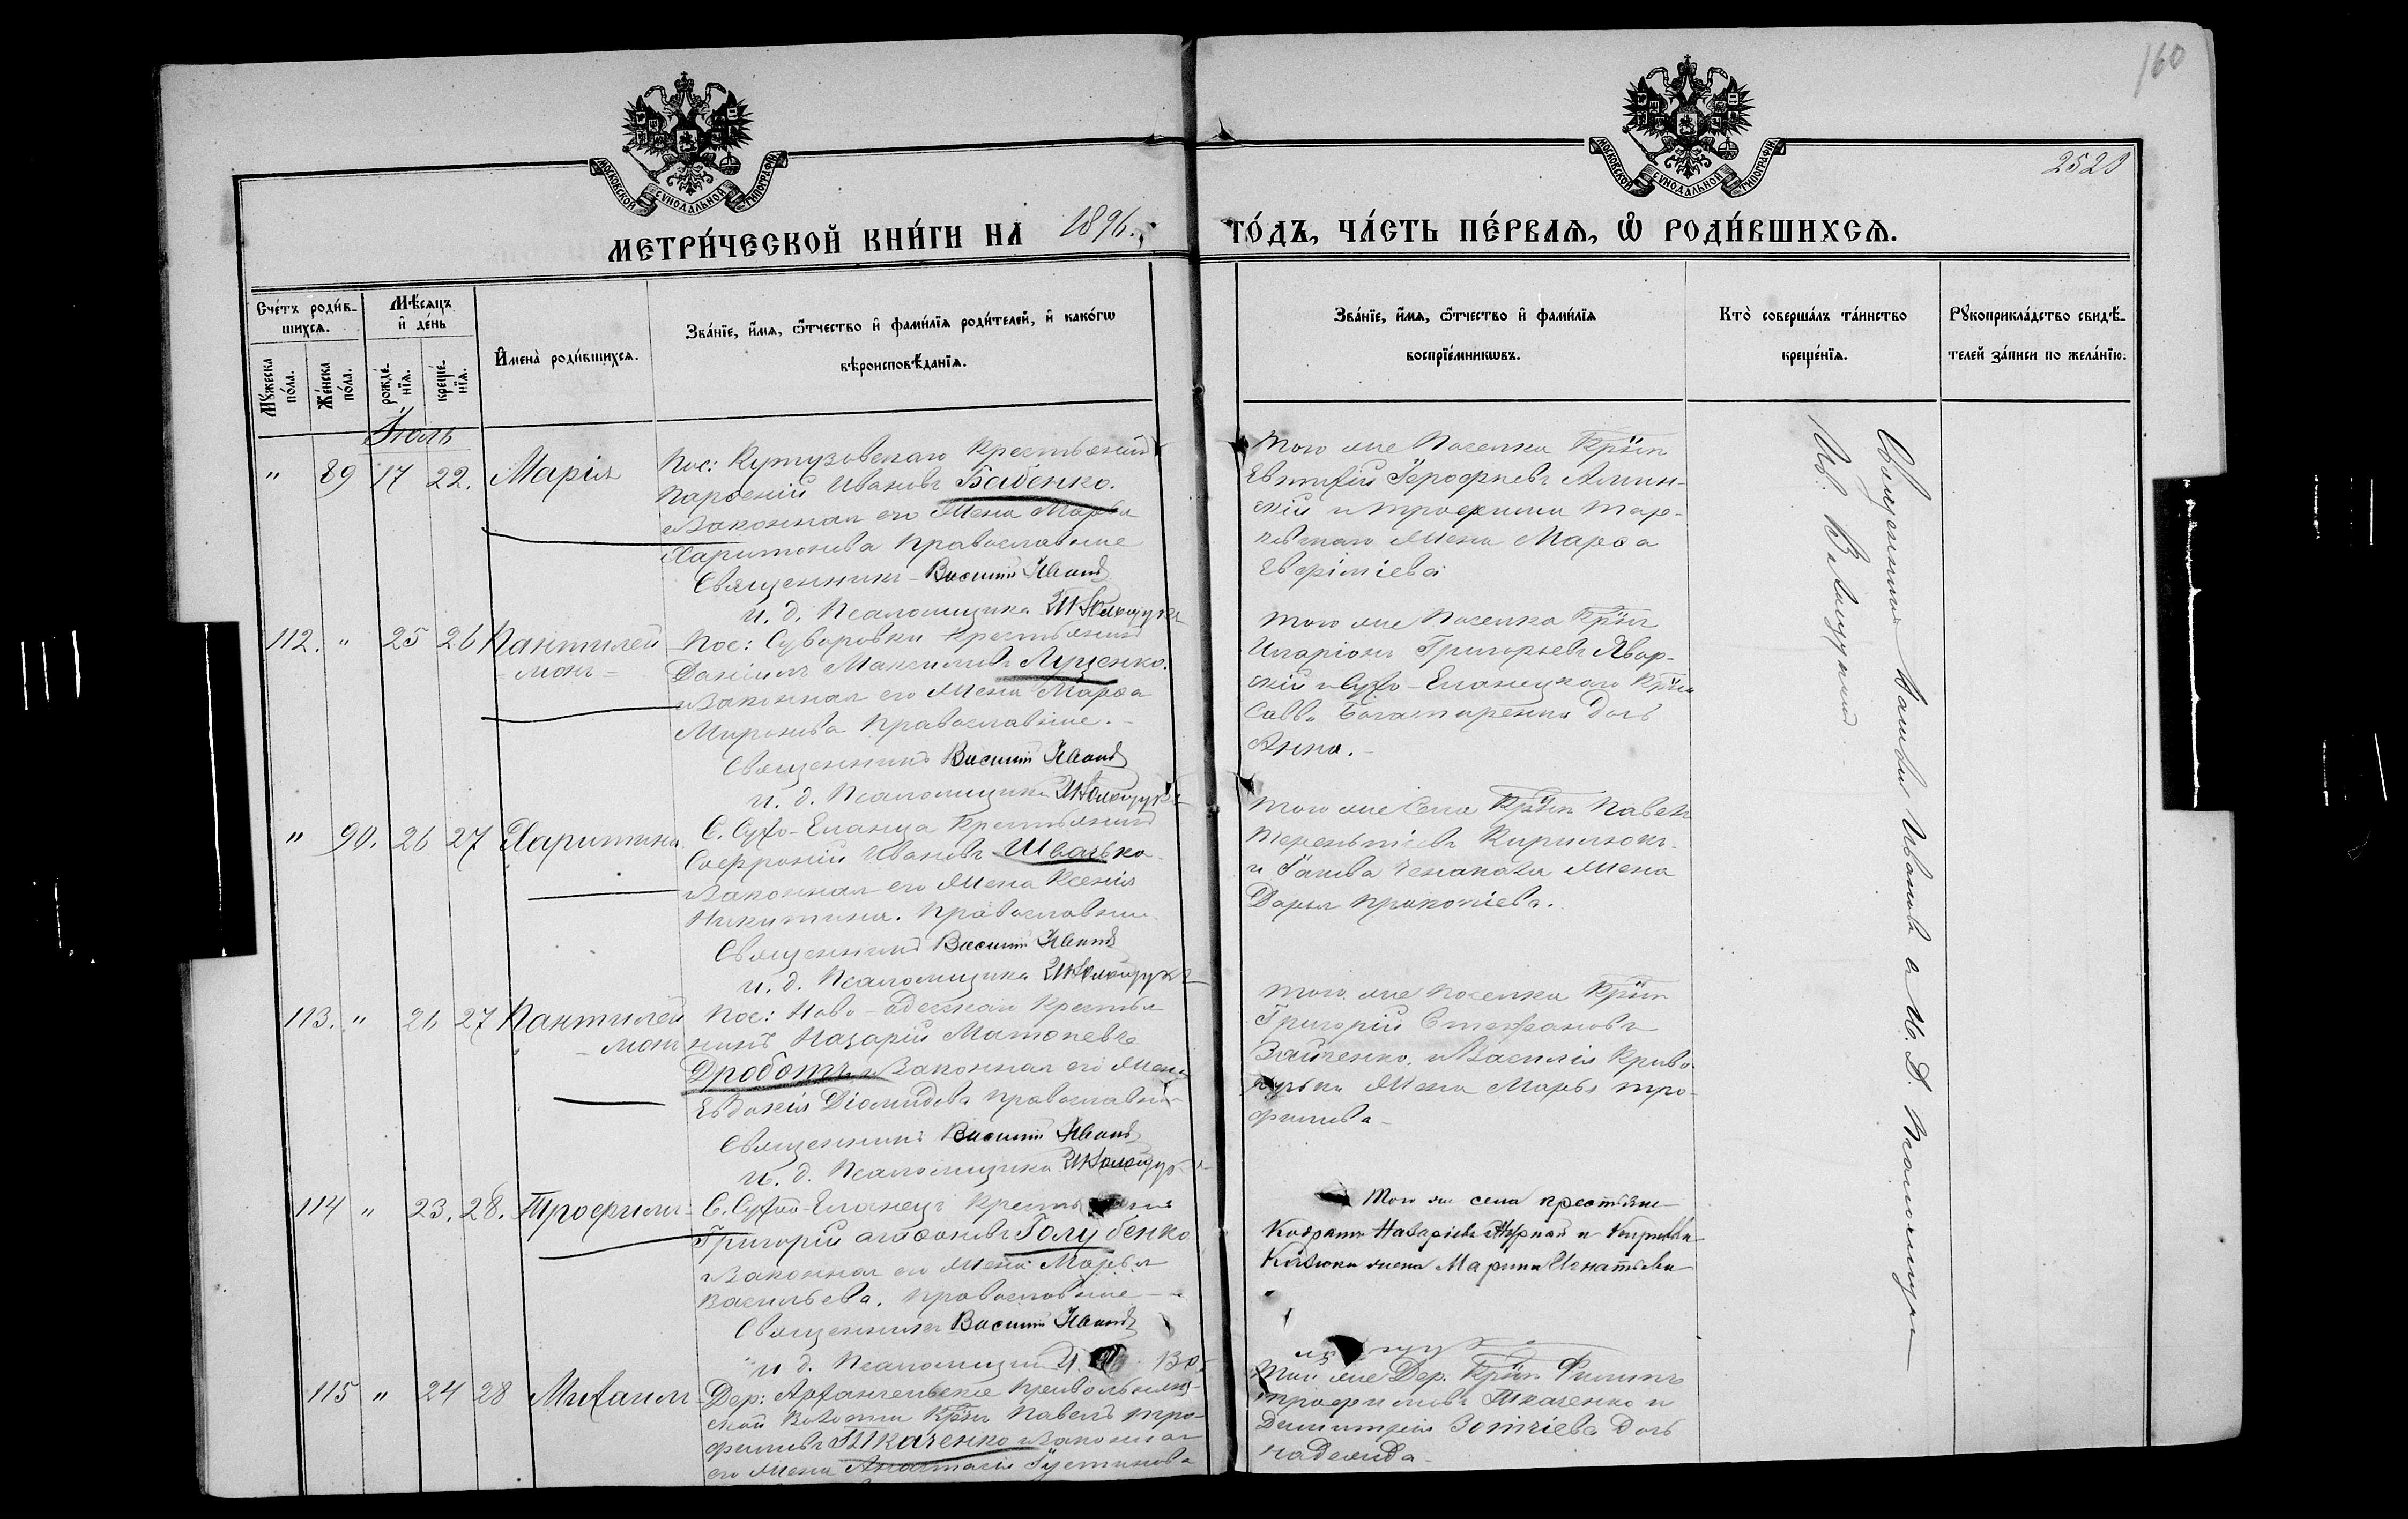 160
2523
МОСКОВСКОЙ СѴНОДАЛЬНОЙ ТИПОГРАФІИ
МОСКОВСКОЙ СѴНОДАЛЬНОЙ ТИПОГРАФІИ
МЕТРИ́ЧЕСКОЙ КНИ́ГИ НА 1896. ГО́ДЪ, ЧА́СТЬ ПЕ́РВАЯ, Ѽ РОДИ́ВШИХСЯ.
Сче́тъ роди́в-
шихся.
Мѣ́сяцъ
и҆ де́нь
Му́жеска по́ла.
Же́нска по́ла.
рожде́-
нїя.
креще́-
нїя.
И҆мена̀ роди́вшихся.
Зва́нїе, и҆́мя, ѻ҆́тчество и҆ фами́лїя роди́телей, и҆ како́гѡ
вѣроисповѣ́данїя.
Зва́нїе, и҆́мя, ѻ҆́тчество и҆ фами́лїя
воспрїе́мникѡвъ.
Кто̀ соверша́лъ та́инство
креще́нїя.
Рꙋкоприкла́дство свидѣ́-
телей за́писи по жела́нїю.
Іюль
" 89 17 22. Марія
Пос: Кутузовскаго Крестьянинъ
Парѳеній Ивановъ Бабенко.
и Законная его Жена Марья
Харитонова Православные
Священникъ Василій Иванов
И. д. Псаломщика
Того же Поселка Крын
Евтихій Ерофѣевъ
и Трофима
Жена Марѳа
Евфиміева
112. " 25 26 Пантилей
монъ
Пос: Суворовки Крестьянинъ
Даніилъ Максимовъ Луценко.
и Законная его Жена Марѳа
Миронова Православные.
Священникъ Василій Иванов
И. д. Псаломщика
Того же Поселка Крын
Иларіонъ Григорьевъ Явор-
скій и Сухо-Еланецкаго Крын
Саввы Богатиренка дочь
Анна.
" 90. 26 27 Харитина
С. Сухо-Еланца Крестьянинъ
Софроній Ивановъ Швачько
и Законная его Жена Ксенія
Никитина. Православные
Священникъ Василій Иванов
И. д. Псаломщика
Того же Села Крын Павелъ
Терентіевъ Кирилюкъ
и Жена
Дарья Прокопіева.
113. " 26 27 Пантилей
монъ
Пос: Ново-Одесскаго Крестья
нинъ Назарій Матѳеевъ
Дроботъ и Законная его Жена
Евдокія Діомидова Православные
Священникъ Василій Иванов
И. д. Псаломщика
Того же Поселка Крын
Григорій Стефановъ
Зайченко и Василія Криво
Жена Марья Тро-
фимова
114 " 23. 28. Трофимъ
С. Сухой-Еланецъ
Григорій Агаѳоновъ Голубенко
и Законная его Жена Марья
Васильева. Православные
Священникъ Василій Иванов
И д. Псаломщик
Того же села крестьяне
Кодратъ Назаріевъ и
жена Марина Игнатьева
115 " 24 28 Михаилъ
Дер: Архангельское Привольнян-
ской Волости Крын Павелъ Тро-
фимовъ Ткаченко и Законная
его Жена Анастасія Іустинова
Той же Дер. Крын Филипъ
Трофимовъ Ткаченко и
Димитрія Зотіева дочь
Надежда
Священникъ Василій Ивановъ с И. Д. Псаломщика